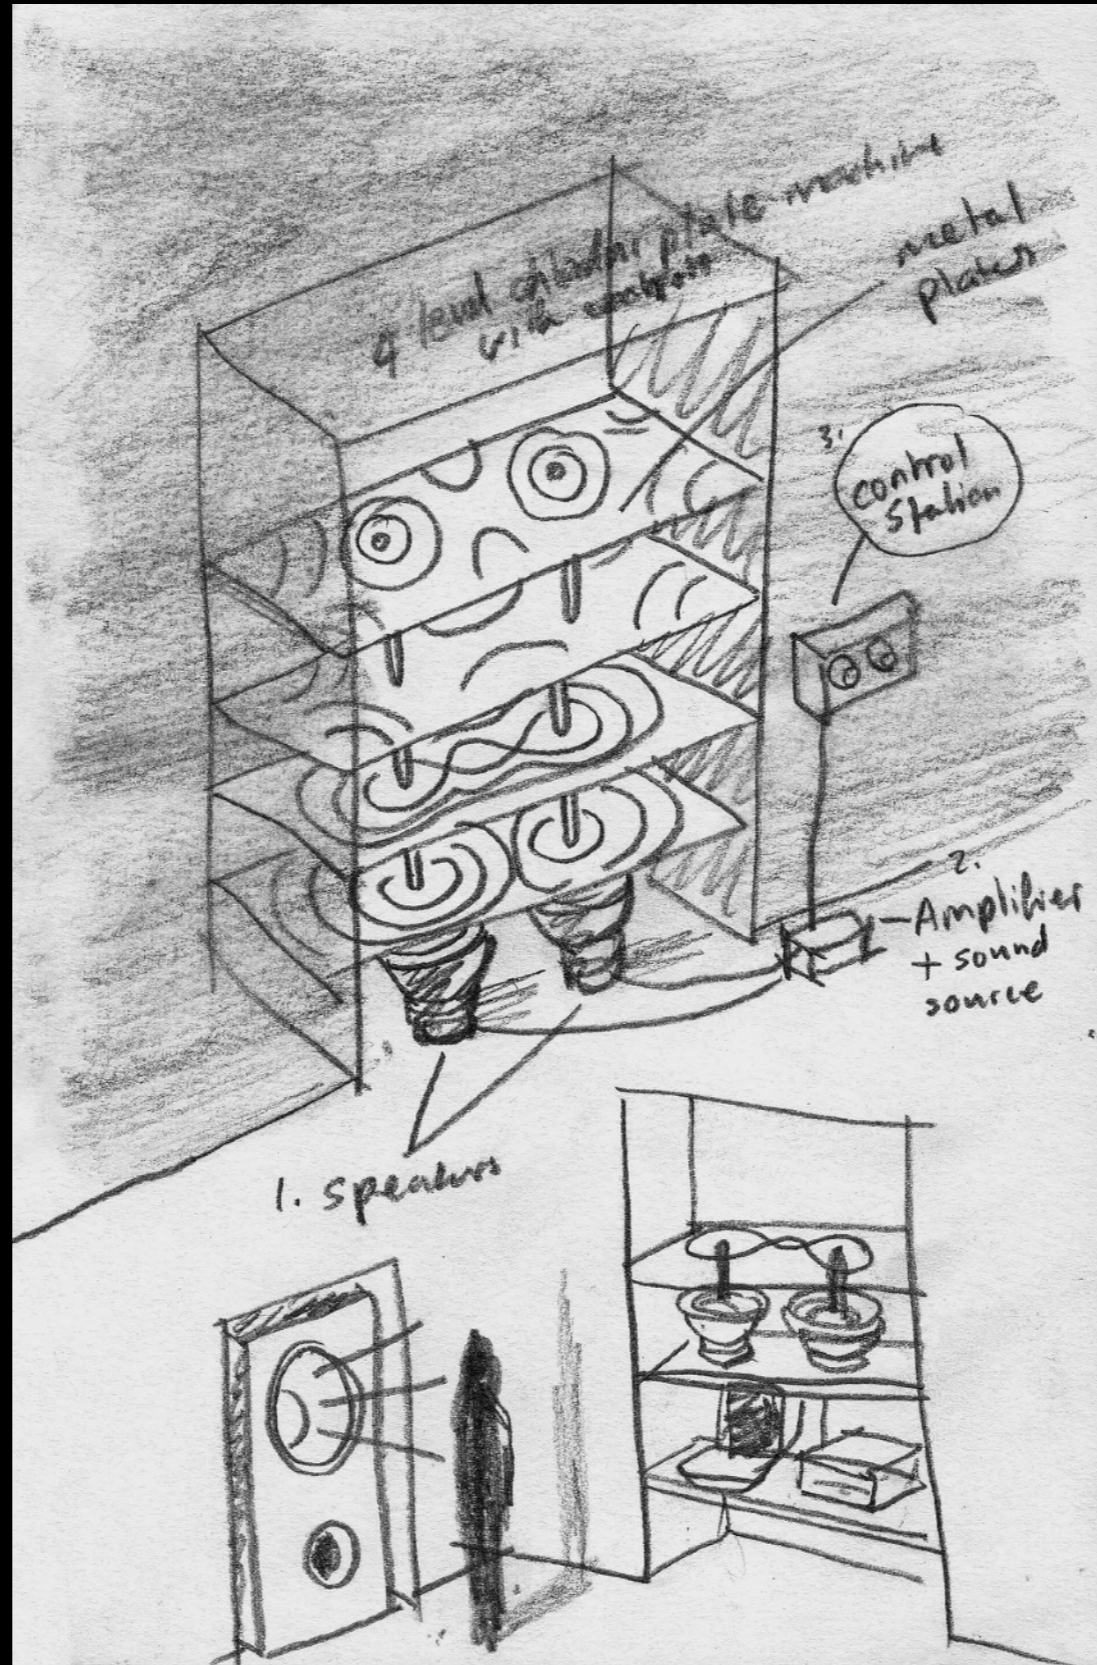 4 level chladni plate machine
with
metal
plates
3.
control
station
2.
Amplifier
+ sound
source
1. speakers